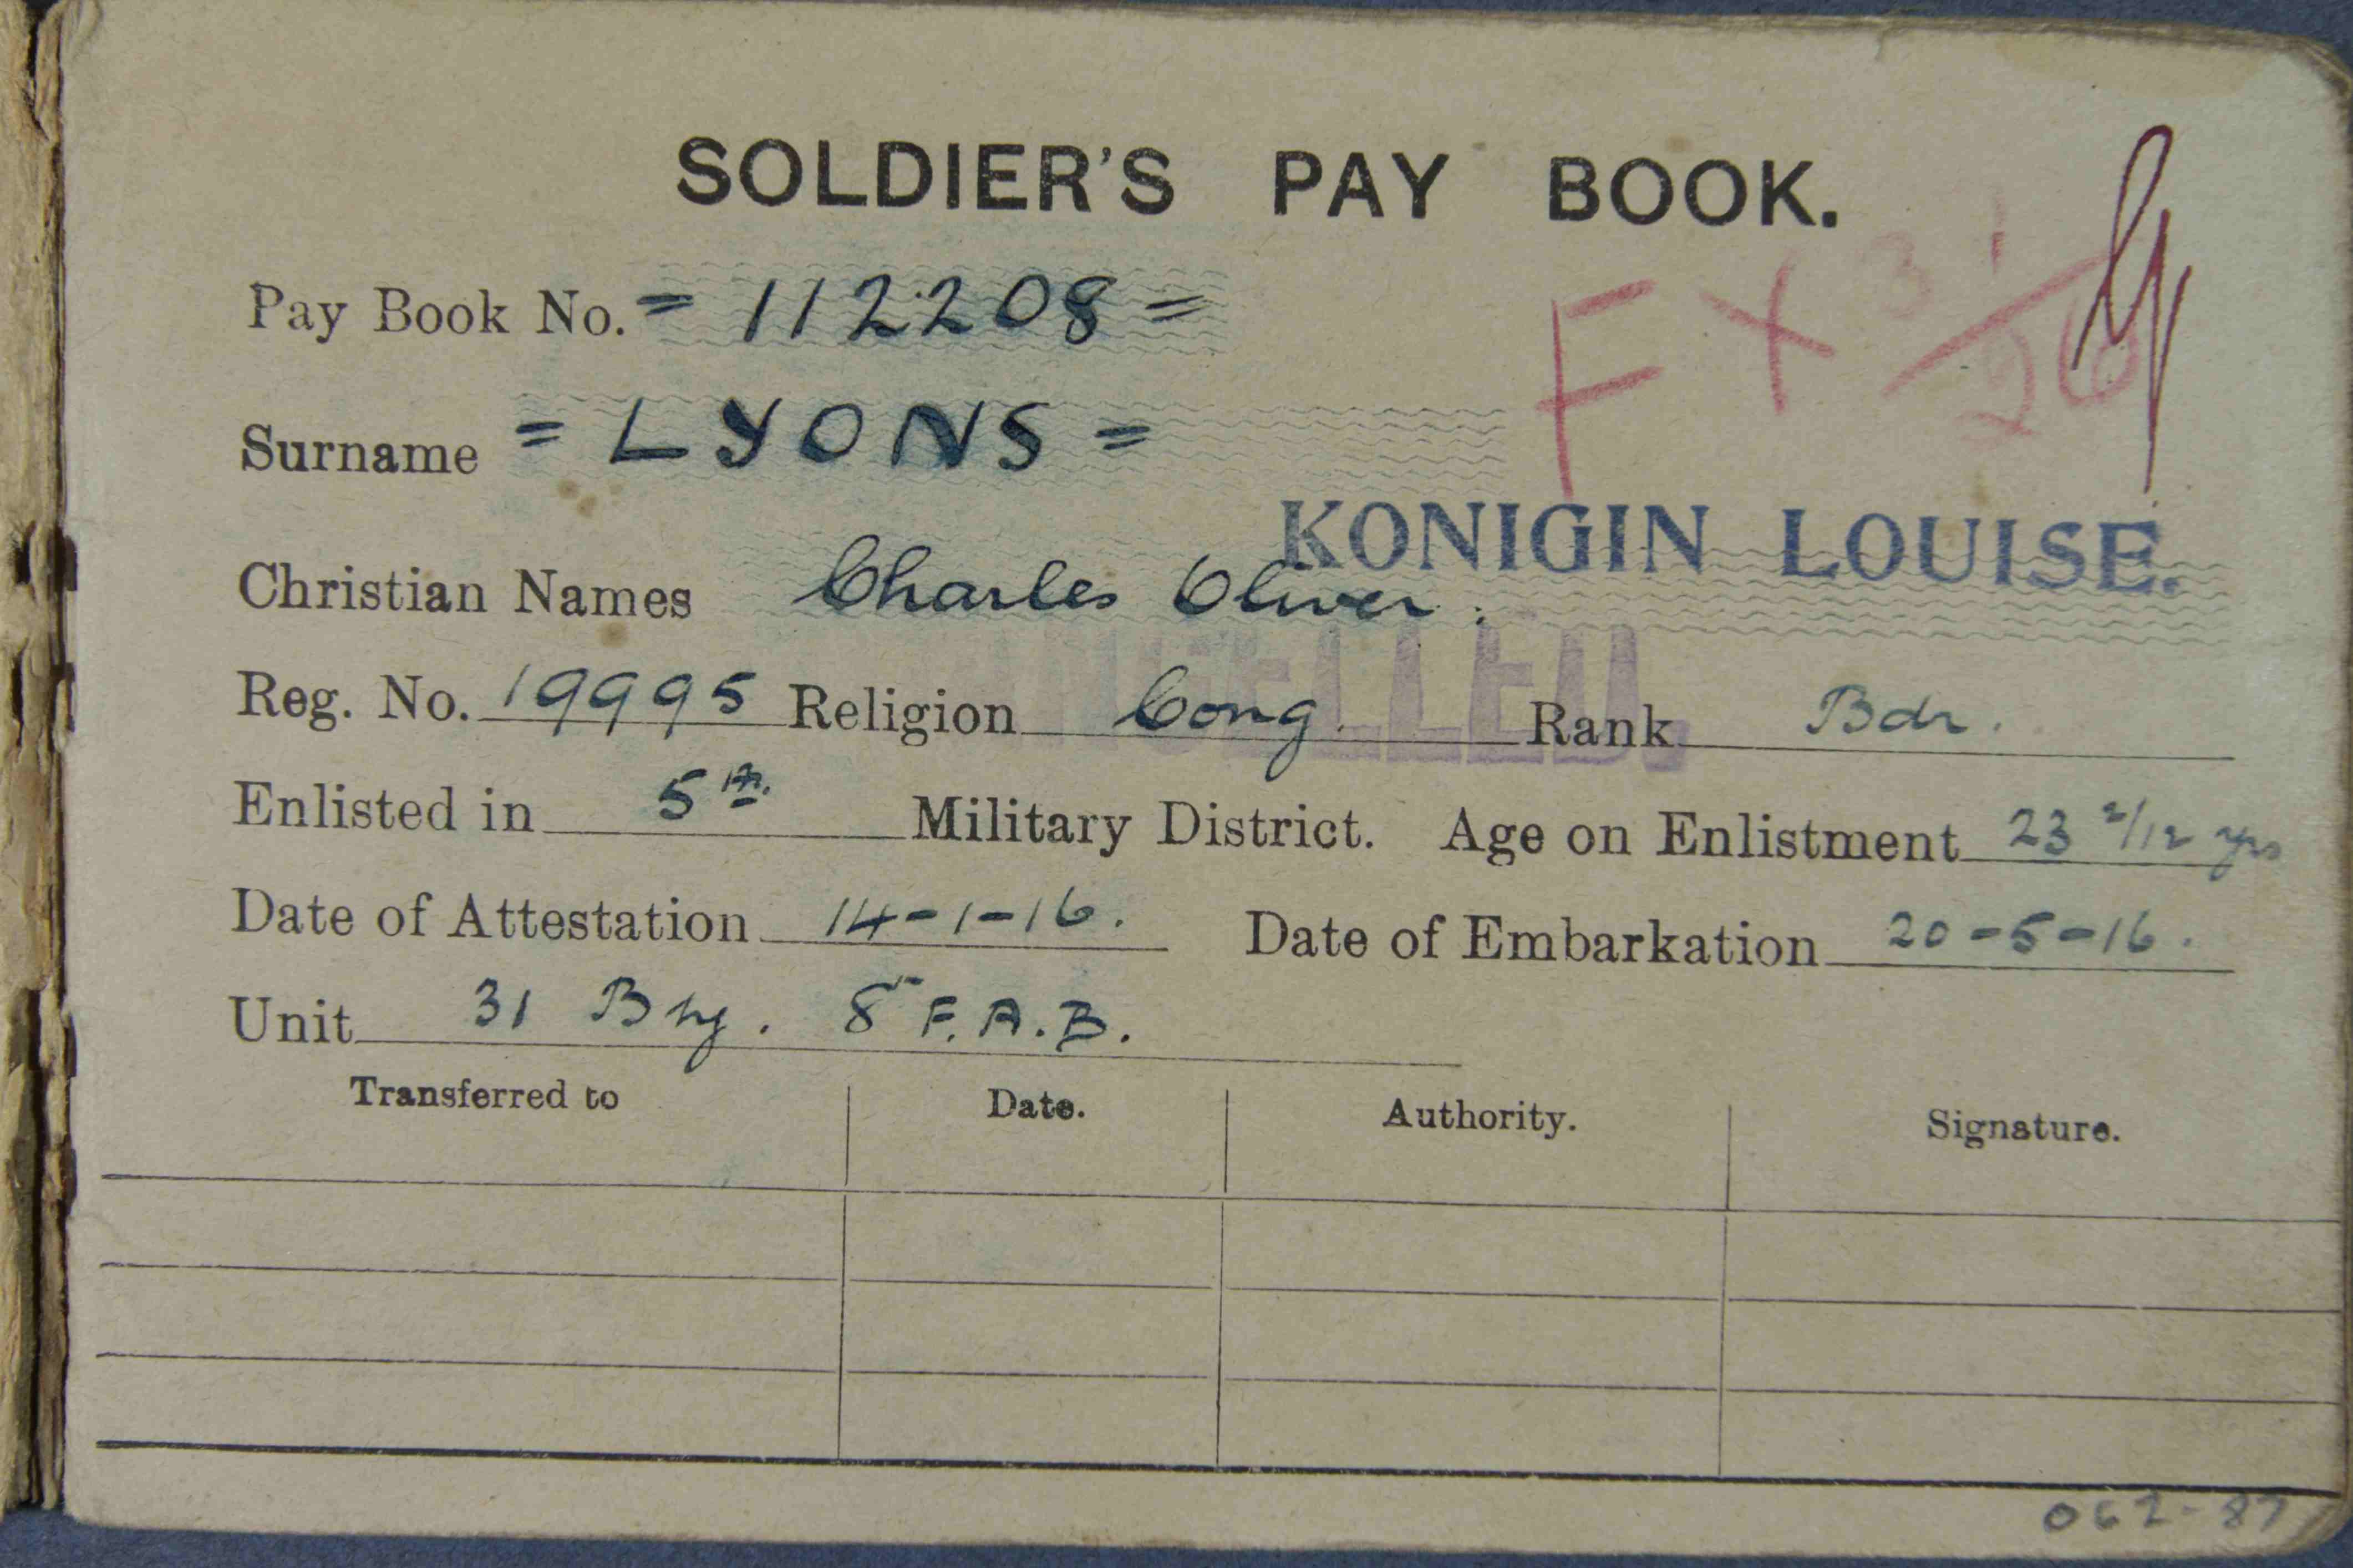 SOLDIER'S PAY BOOK.
Pay Book No. = 112208 =
F X 3/26
Surname = LYONS =
KONIGIN LOUISE.
Christian Names Charles Oliver.
CANCELLED.
Reg. No. 19995 Religion Cong. Rank Bdr.
Enlisted in 5th. Military District. Age on Enlistment 23 2/12 yrs
Date of Attestation 14-1-16. Date of Embarkation 20-5-16.
Unit 31 Bty. 8 F.A.B.
Transferred to Date. Authority. Signature.
062-87